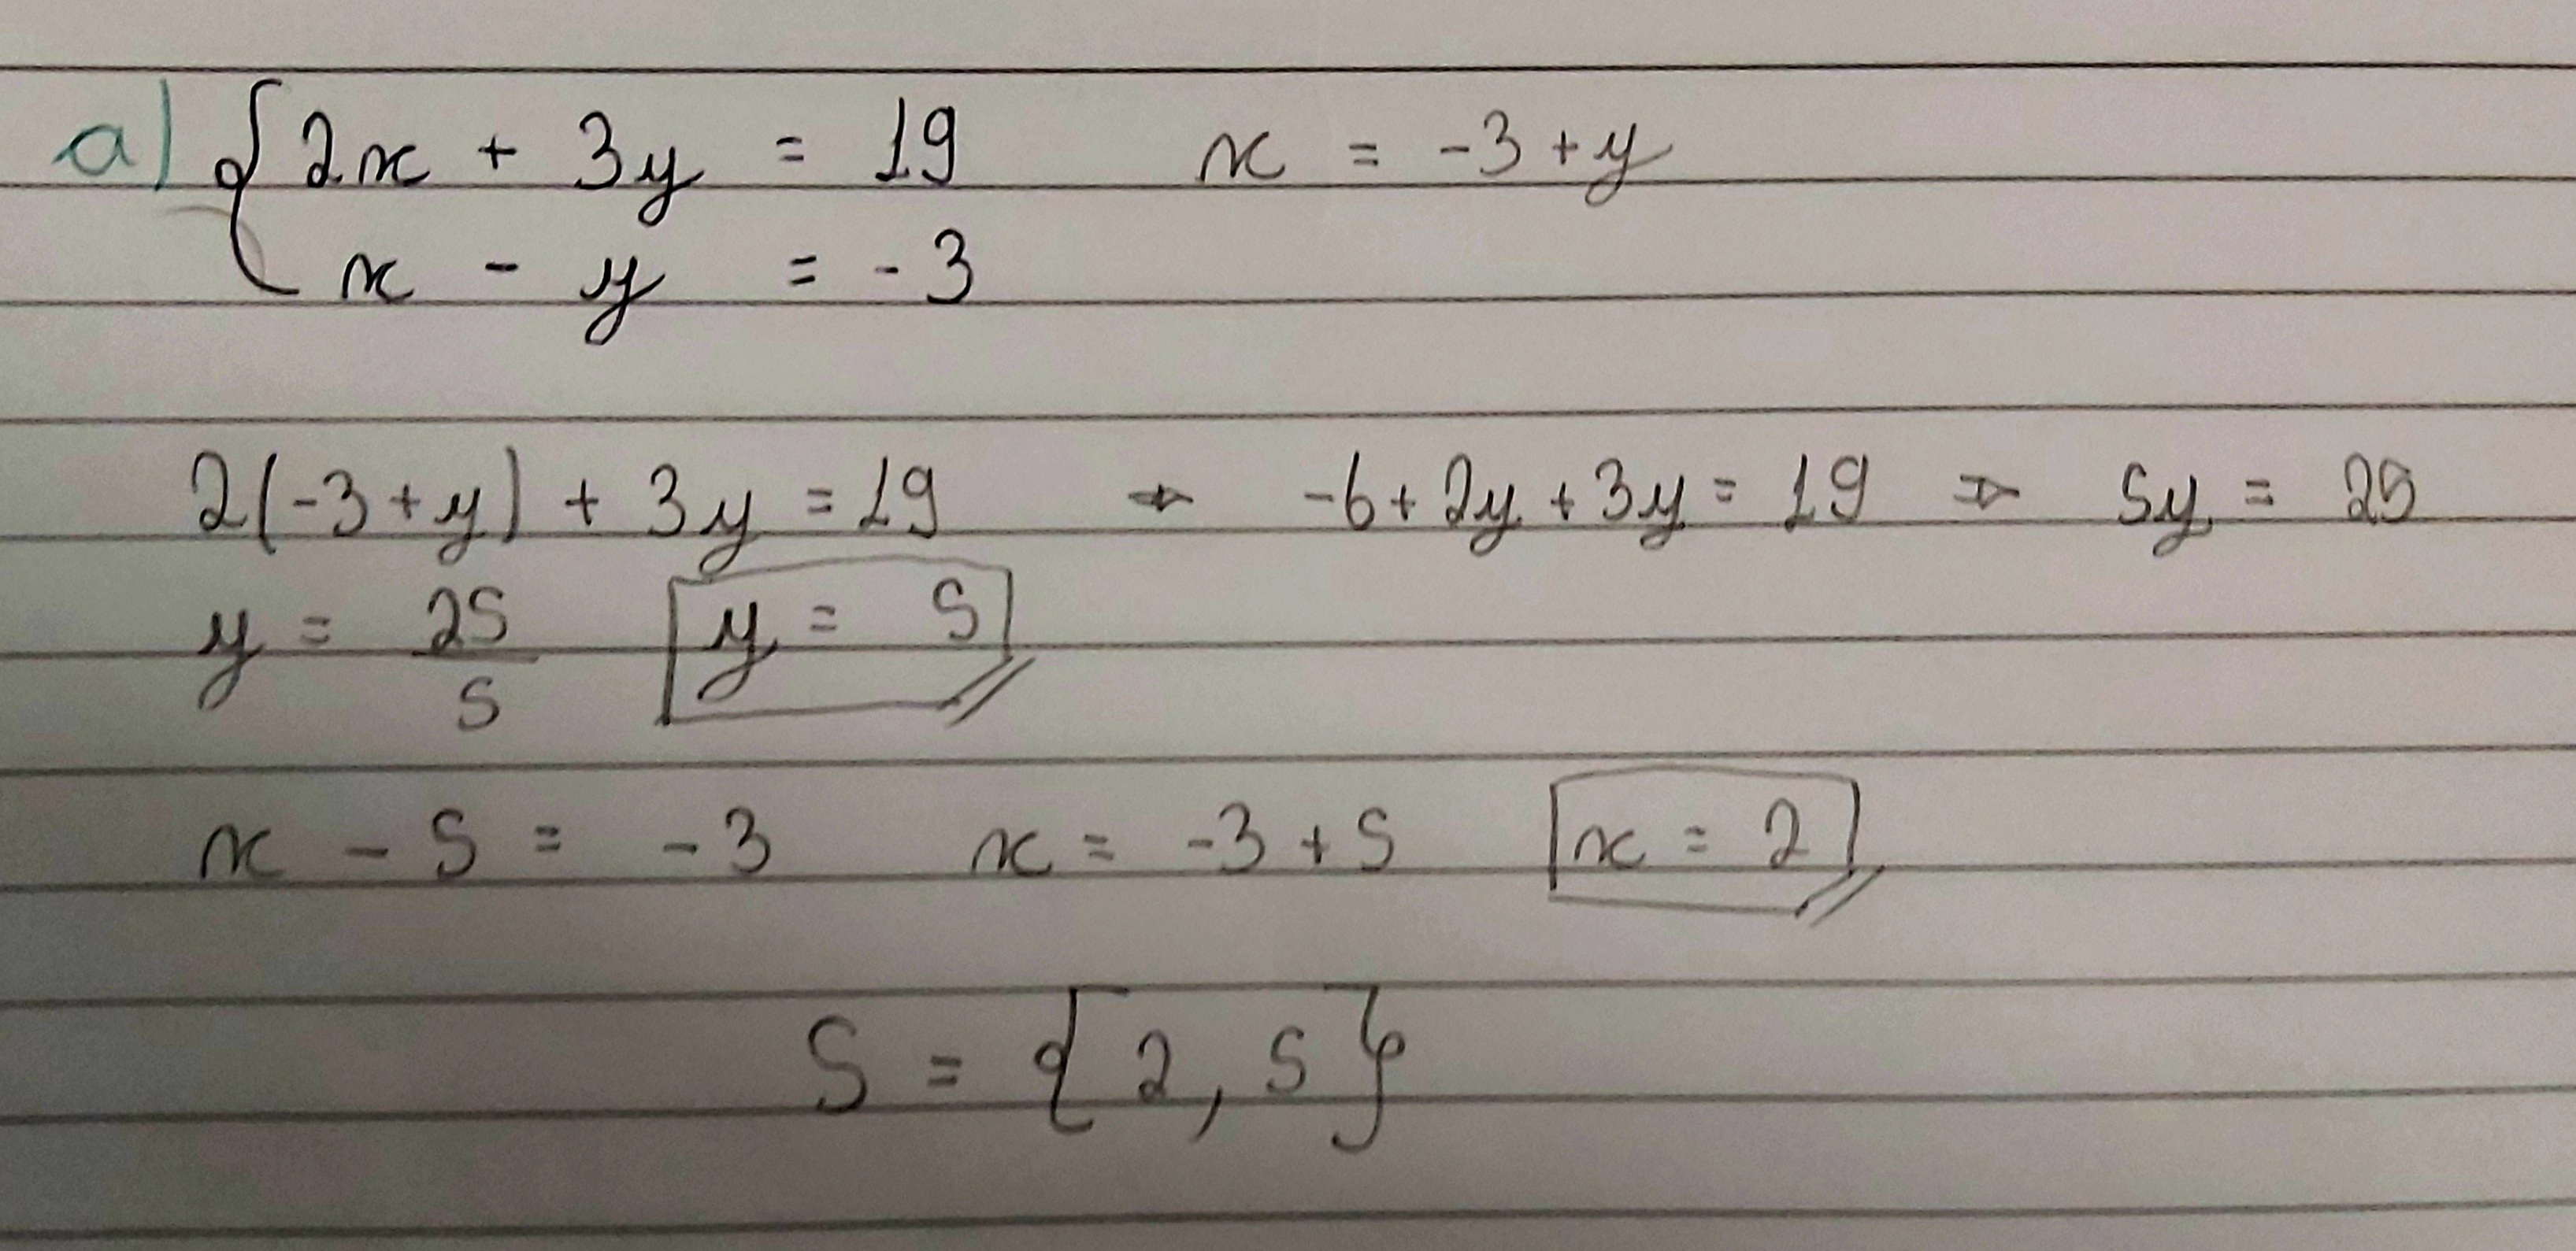 a) { 2x + 3y = 19    x = -3 + y
x - y = -3
2(-3 + y) + 3y = 19 → -6 + 2y + 3y = 19 → 5y = 25
y = 25/5    y = 5
x - 5 = -3    x = -3 + 5    x = 2
S = {2, 5}